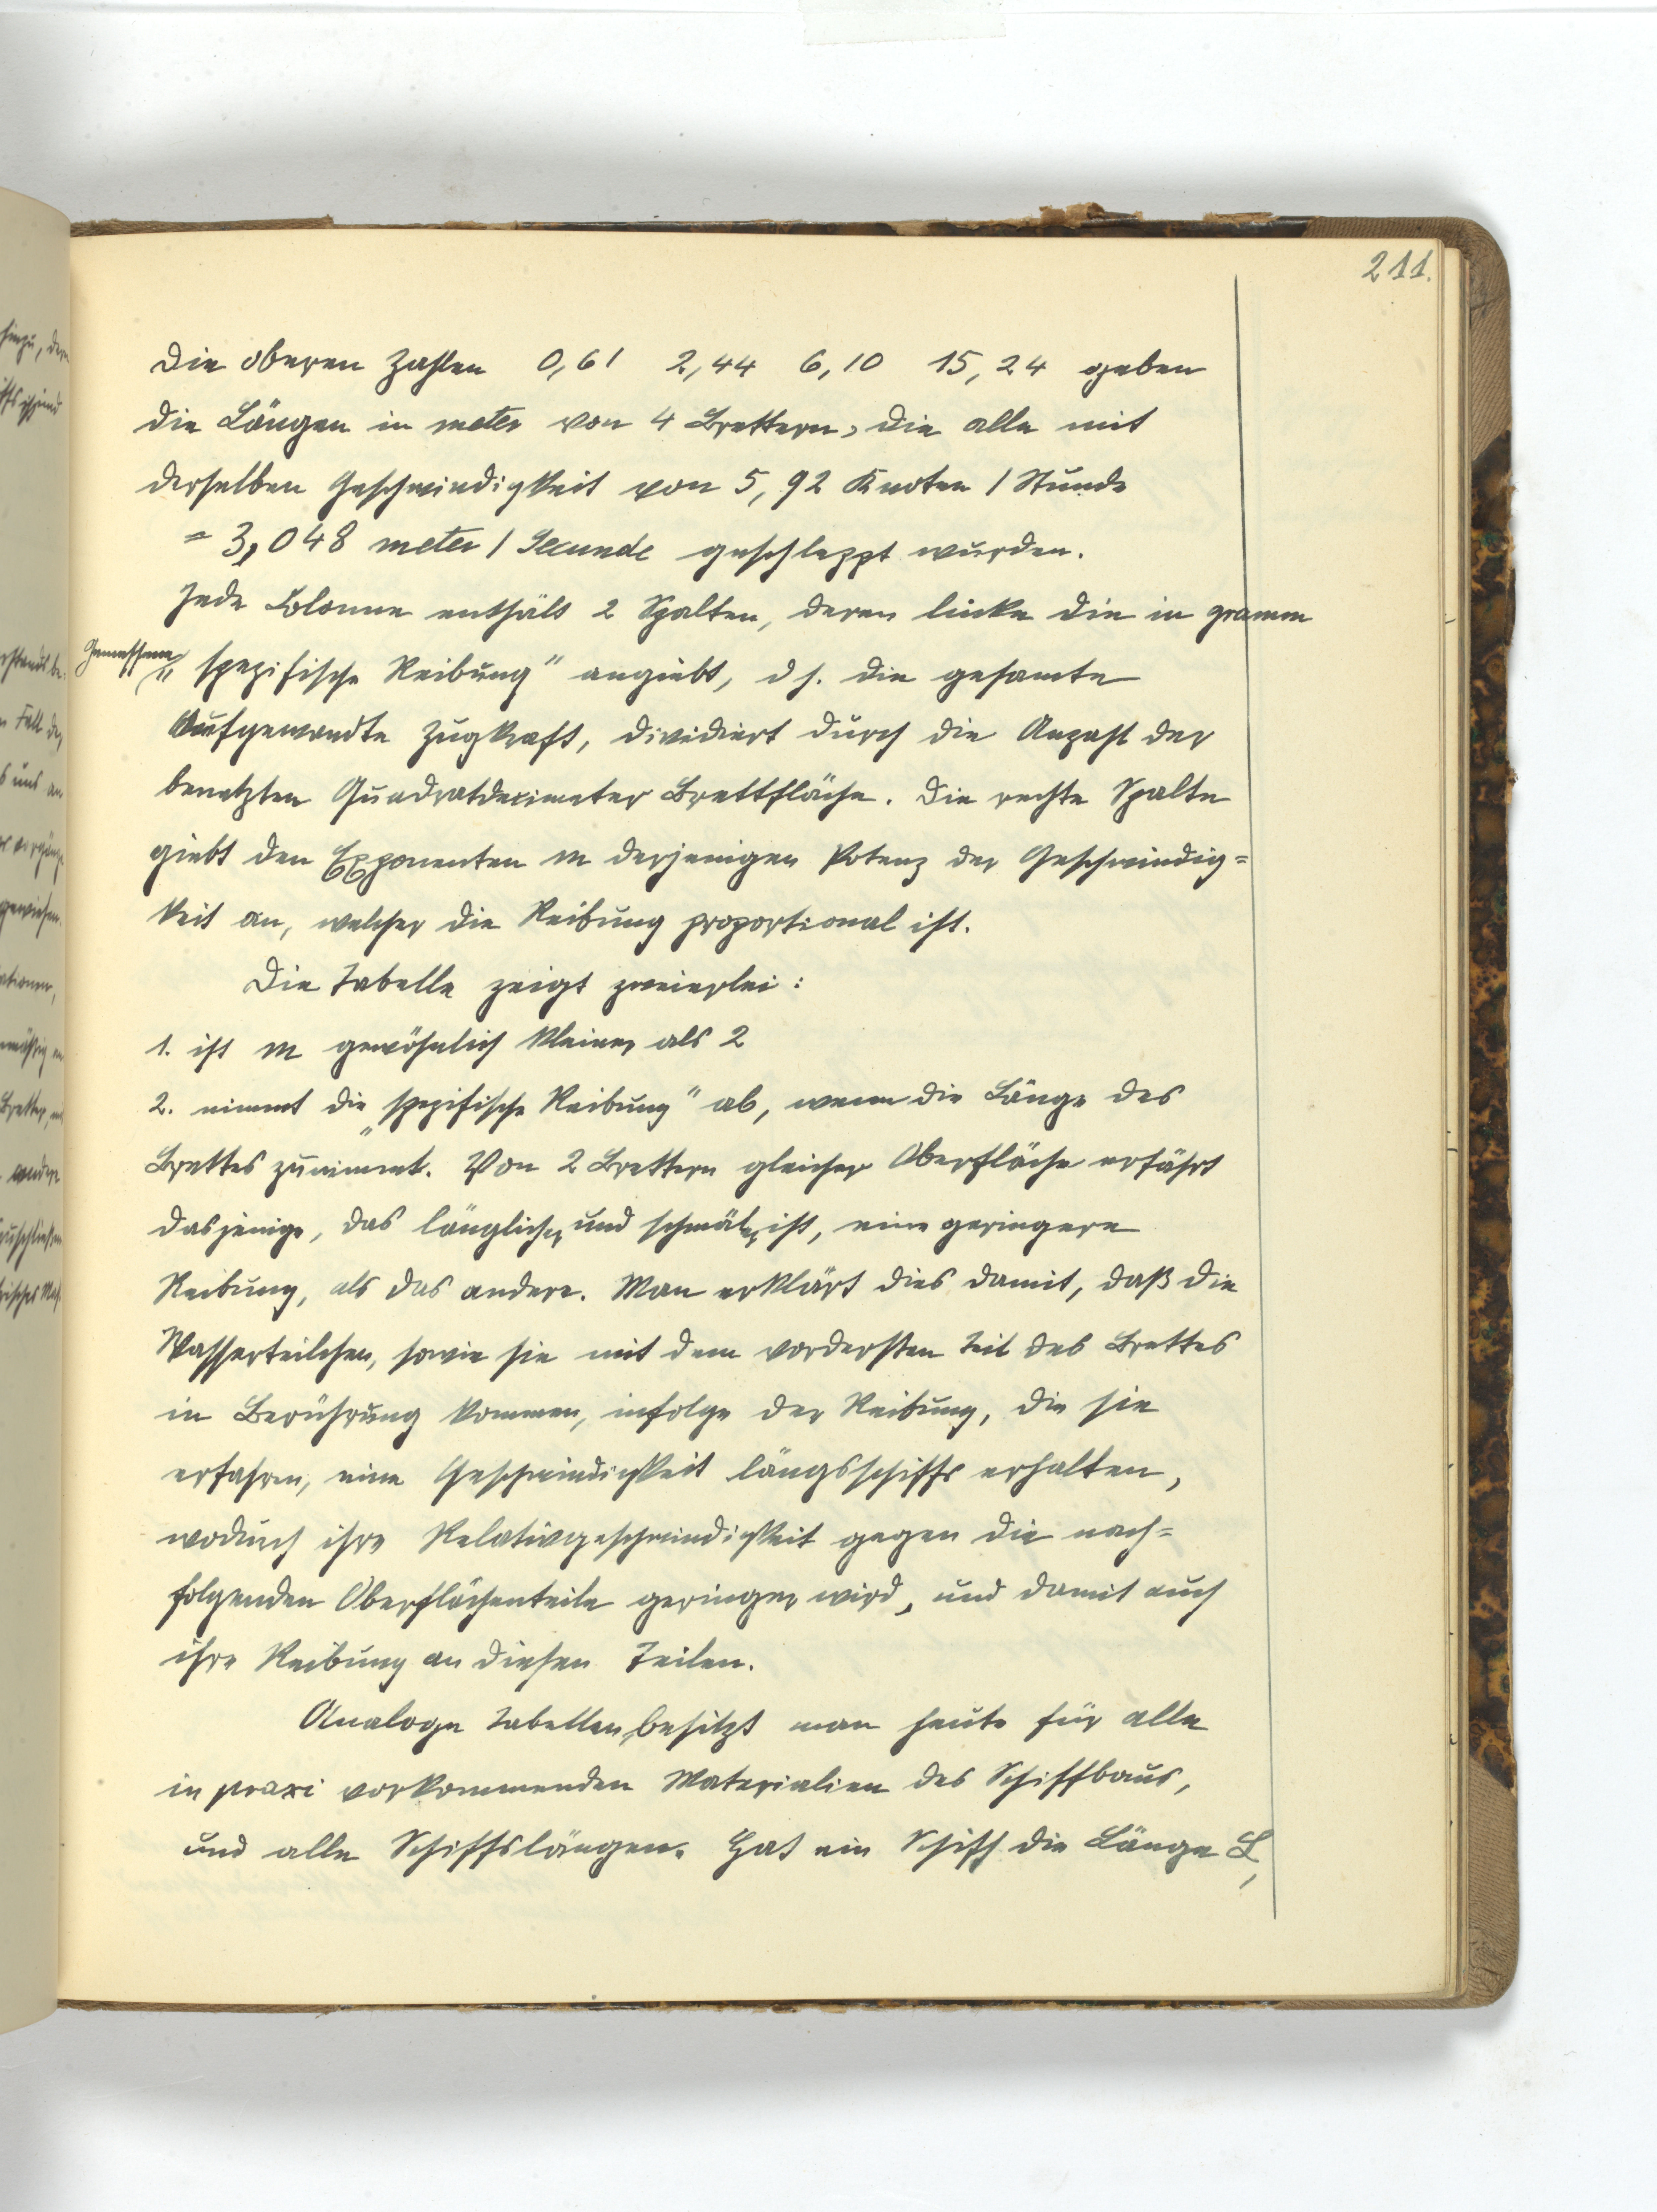 211.
Die oberen Zahlen 0,61 2,44 6,10 15,24 geben
die Längen in meter von 4 Brettern, die alle mit
derselben Geschwindigkeit von 5,92 Knoten / Stunde
= 3,048 meter / Secunde geschleppt wurden.
Jede Colonne enthält 2 Spalten, deren linke die in gramm
Gemessene „spezifische Reibung" angiebt, d s. die gesamte
Aufgewandte Zugkraft, dividiert durch die Anzahl der
benetzten Quadratdecimeter Brettfläche. Die rechte Spalte
giebt den Exponenten m derjenigen Potenz der Geschwindig=
keit an, welcher die Reibung proportional ist.
Die Tabelle zeigt zweierlei:
1. ist m gewöhnlich kleiner als 2
2. nimmt die „spezifische Reibung" ab, wenn die Länge des
Brettes zunimmt. Von 2 Brettern gleicher Oberfläche erfährt
dasjenige, das länglicher und schmäler ist, eine geringere
Reibung, als das andere. Man erklärt dies damit, daß die
Wasserteilchen, sowie sie mit dem vordersten Teil des Brettes
in Berührung kommen, infolge der Reibung, die sie
erfahren, eine Geschwindigkeit längsschiffs erhalten,
wodurch ihre Relativgeschwindigkeit gegen die nach=
folgenden Oberflächenteile geringer wird, und damit auch
ihre Reibung an diesen Teilen.
Analoge Tabellen besitzt man heute für alle
in praxi vorkommenden Materialien des Schiffbaus,
und alle Schiffslängen. Hat ein Schiff die Länge L,